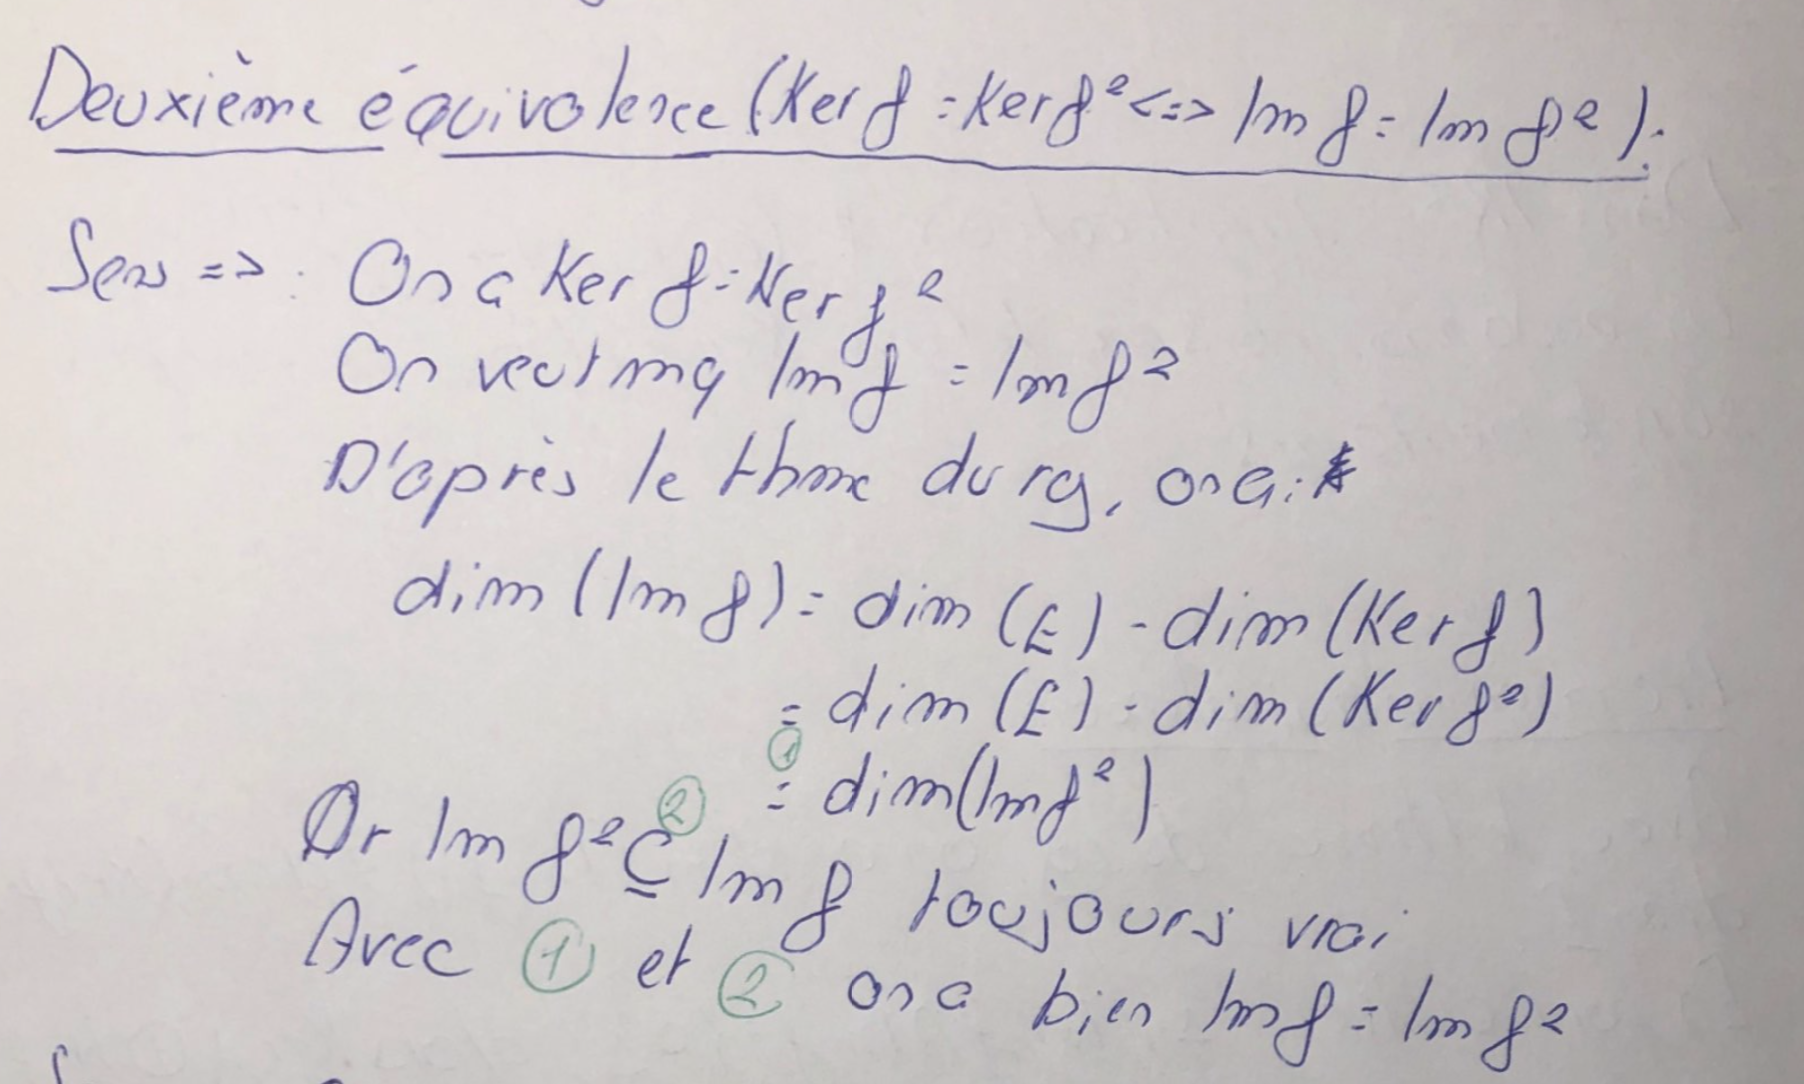 Deuxième équivalence (Ker f = Ker f² <=> Im f = Im f²):
Sens => : On a Ker f = Ker f²
On veut mq Im f = Im f²
D'après le thme du rg, on a :
dim (Im f) = dim (E) - dim (Ker f)
= dim (E) - dim (Ker f²)
① = dim (Im f²)
Or Im f² ⊆ ② Im f toujours vrai
Avec ① et ② on a bien Im f = Im f²